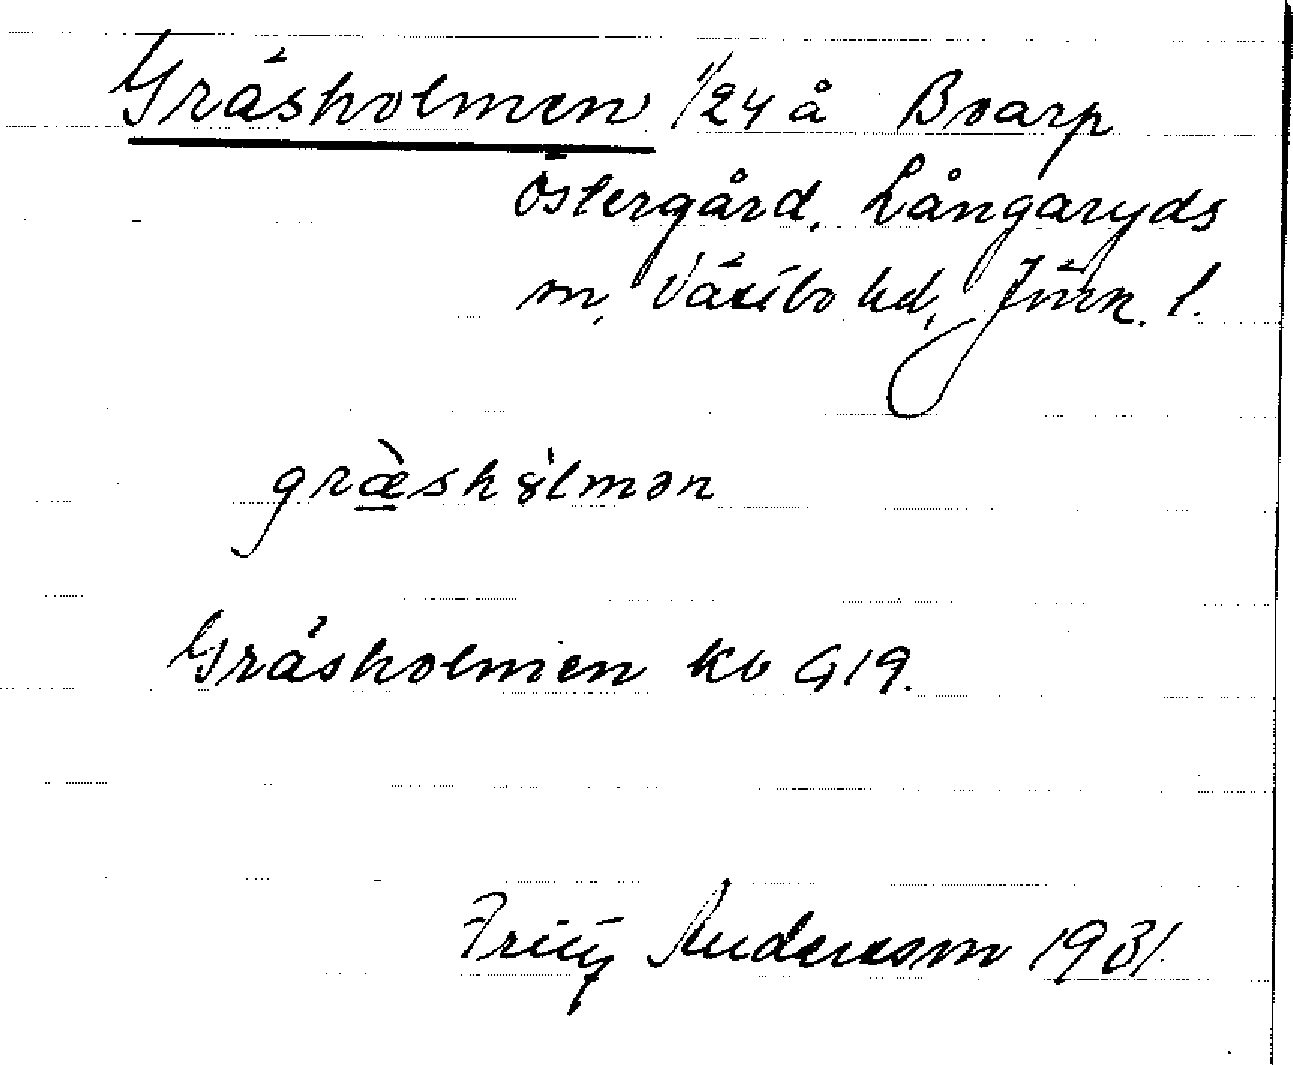 Gräsholmen 1/24 å Boarp
Östergård, Långaryds
sn, Västbo hd, Jönk. l.
græ̀shȯlmən
Gräsholmen kb G19.
Fritz Andersson 1931